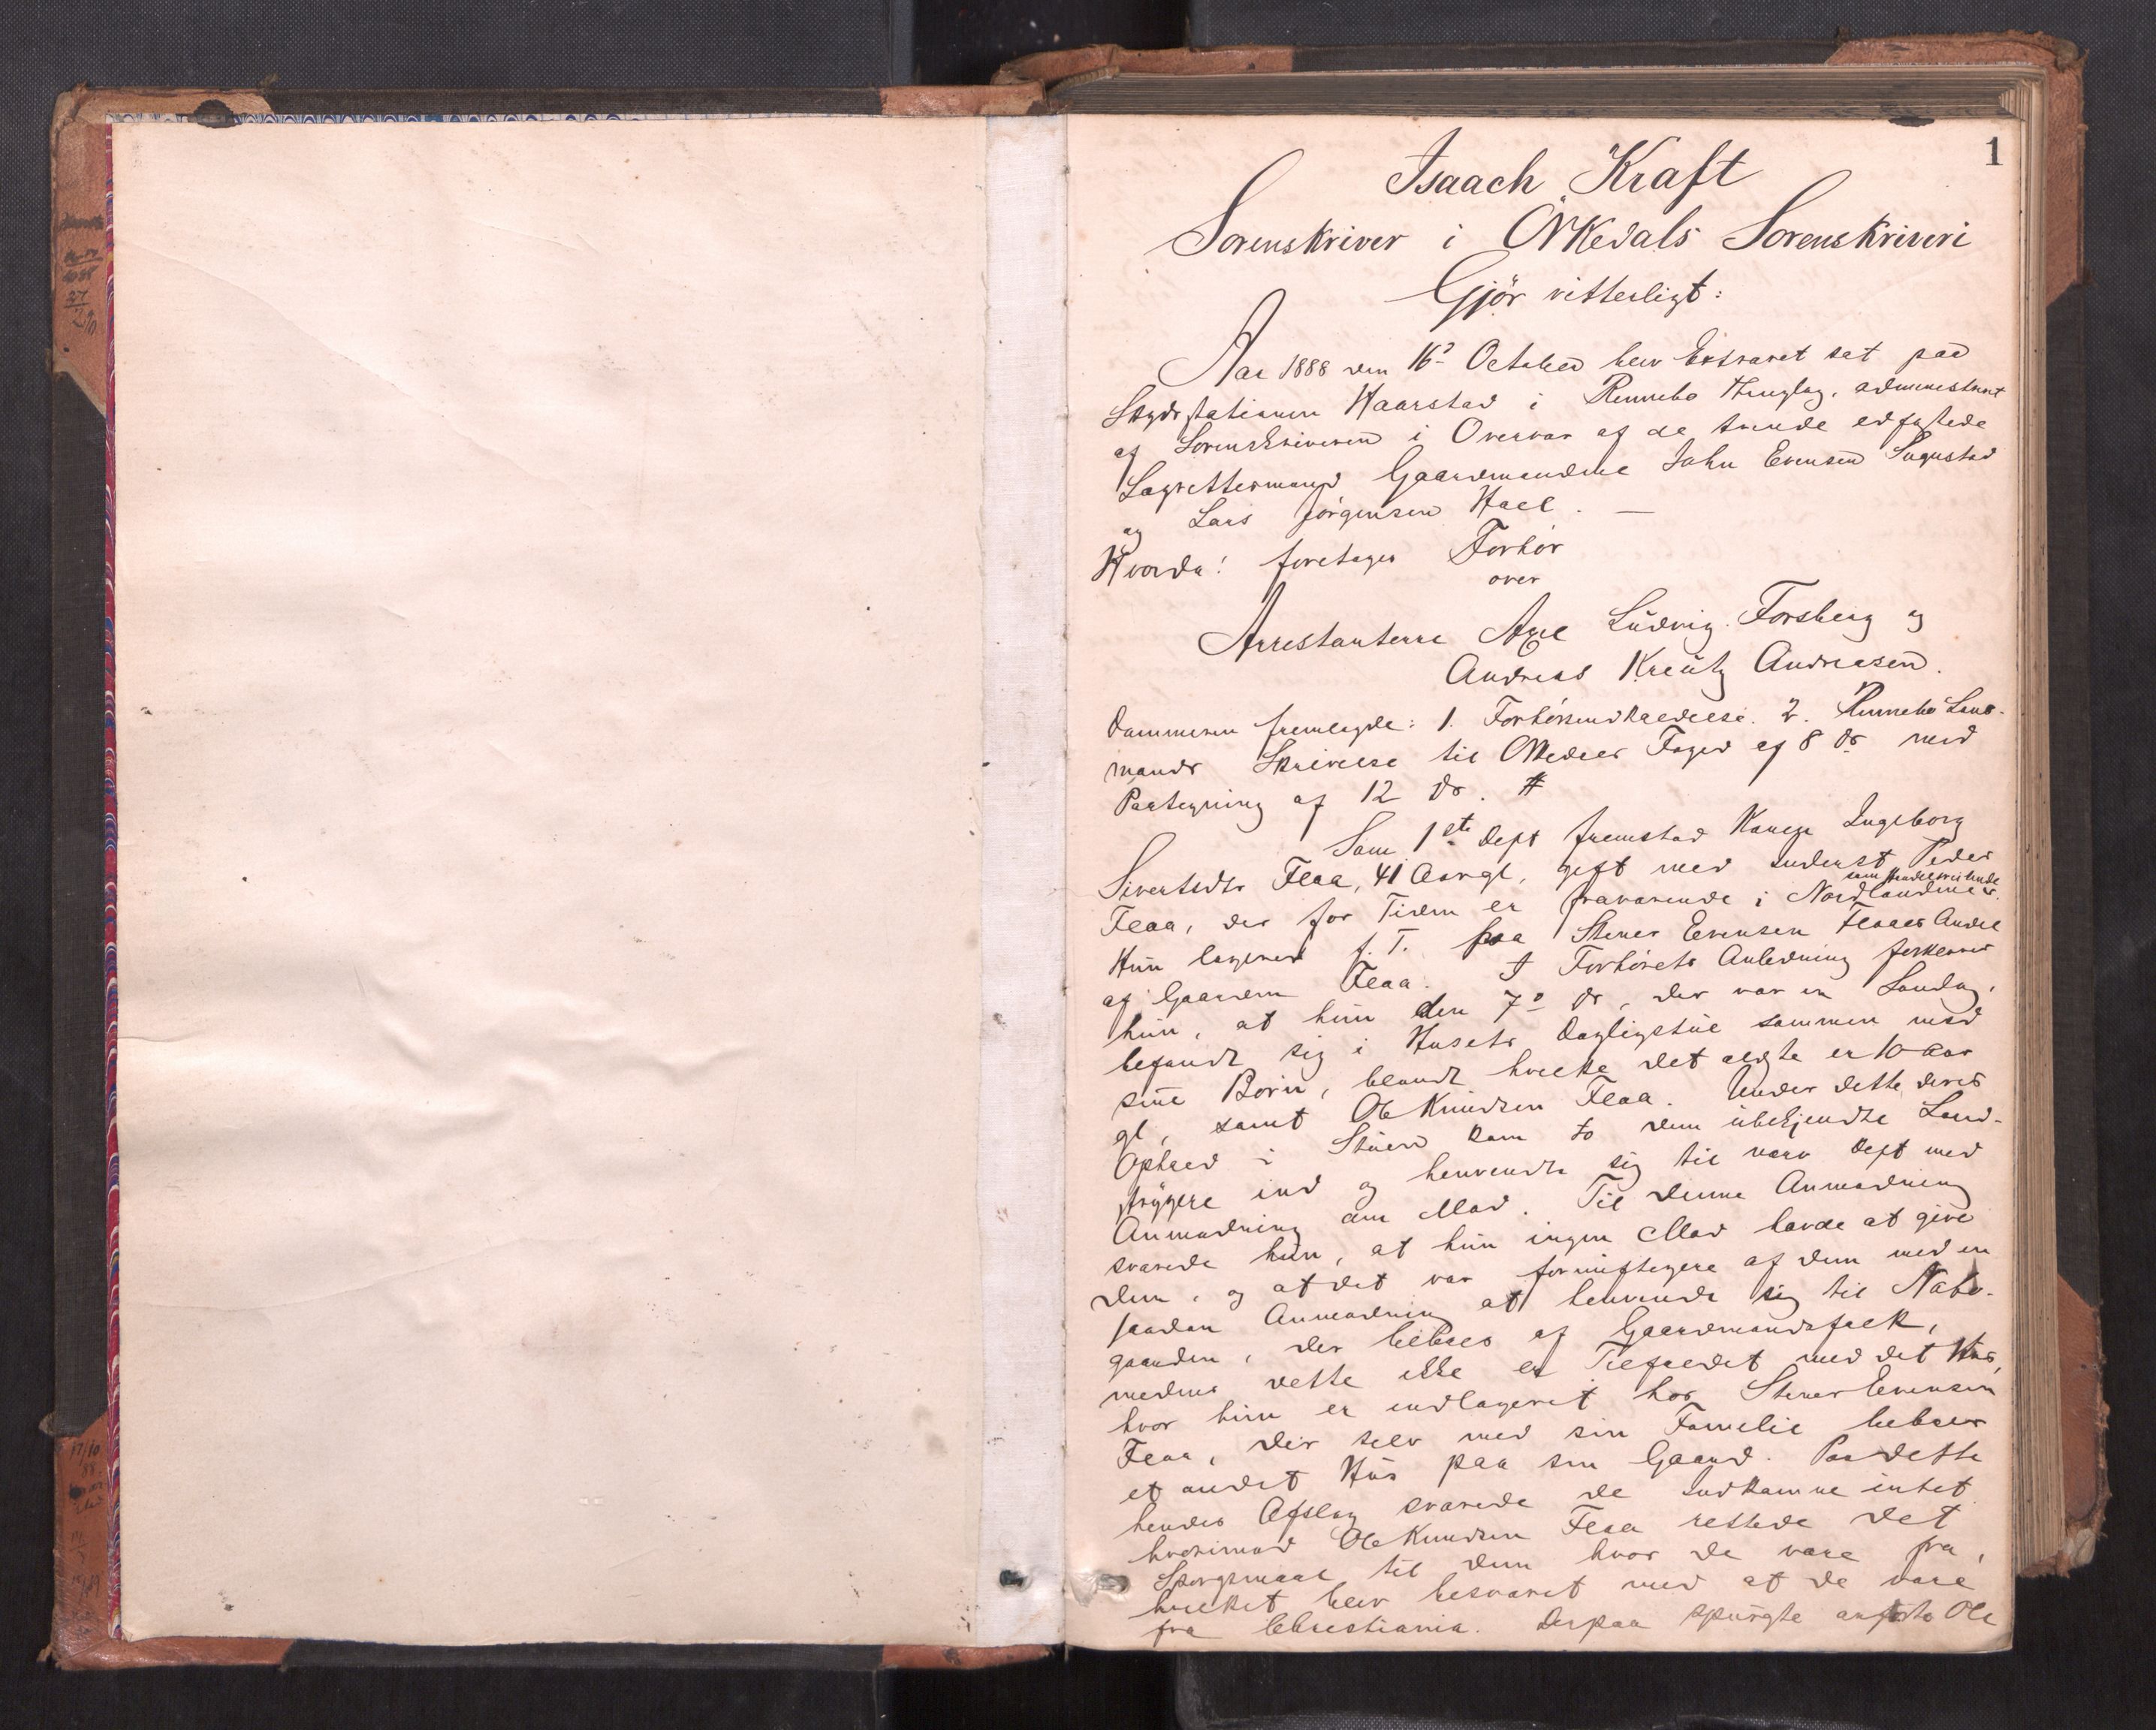 1
Isaach Kraft
Sorenskriver i Örkedals Sorenskriveri
Gjör vitterligt:
Aar 1888 den 16de October blev Extraret sat paa
Skydsstationen Haarstad i Rennebo Thinglag, administreret
af Sorenskriveren i Overvær af de tvende edfæstede
Lagrettesmænd Gaardmændene John Evensen
og Lars Jörgensen Hoel. —
Hvorda: foretages Forhör
over
Arrestanterne Axel Ludvig Forsberg og
Andreas Kreutz Andreasen.
Dommeren fremlagde: 1. Forhörsindkaldelse. 2. Rennebo Lens-
mands Skrivelse til Orkedals Foged af 8 ds med
Paategning af 12 ds. #
Som 1ste Dept fremstod Karen Ingeborg
Sivertsdtr Floa, 41 Aar gl, gift med Inderst Peder
Floa, der for Tiden er fraværende i Nordlandene
som Handelsreisende
Hun logerer f. T. paa Stener Evensen Floaes Andel
af Gaarden Floa. I Forhörets Anledning forklarer
hun, at hun den 7de ds, der var en Sondag,
befandt sig i Husets Dagligstue sammen med
sine Börn, blandt hvilke det ældste er 10 Aar
gl, samt Ole Knudsen Floa. Under dette deres
Ophold i Stuen kom to dem übekjendte Land-
strygere ind og henvendte sig til nærv Dept med
Anmodning om Mad. Til denne Anmodning
svarede hun, at hun ingen Mad havde at give
dem, og at det var fornuftigere af dem med en
saadan Anmodning at henvende sig til Nabo-
gaarden, der beboes af Gaardmandsfolk,
medens dette ikke er Tilfældet med det Hus,
hvor hun er indlogeret hos Stener Evensen
Floa, der selv med sin Familie beboer
et andet Hus paa sin Gaard. Paa dette
hendes Afslag svarede de Indkomne intet
hvorimod Ole Knudsen Floa rettede det
Spörgsmaal til dem hvor de vare fra,
hvilket blev besvaret med at de vare
fra Christiania. Derpaa spurgte anförte Ole